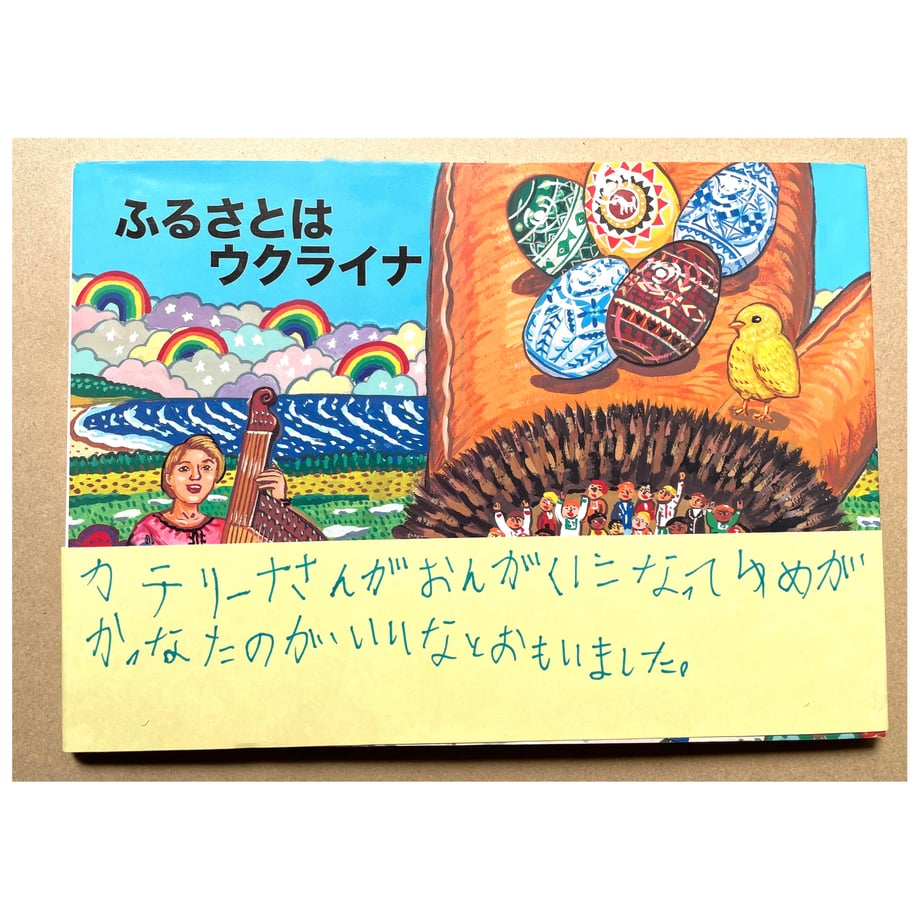 ふるさとは
ウクライナ
カテリーナさんがおんがくになってゆめが
かっなたのがいいなとおもいました。